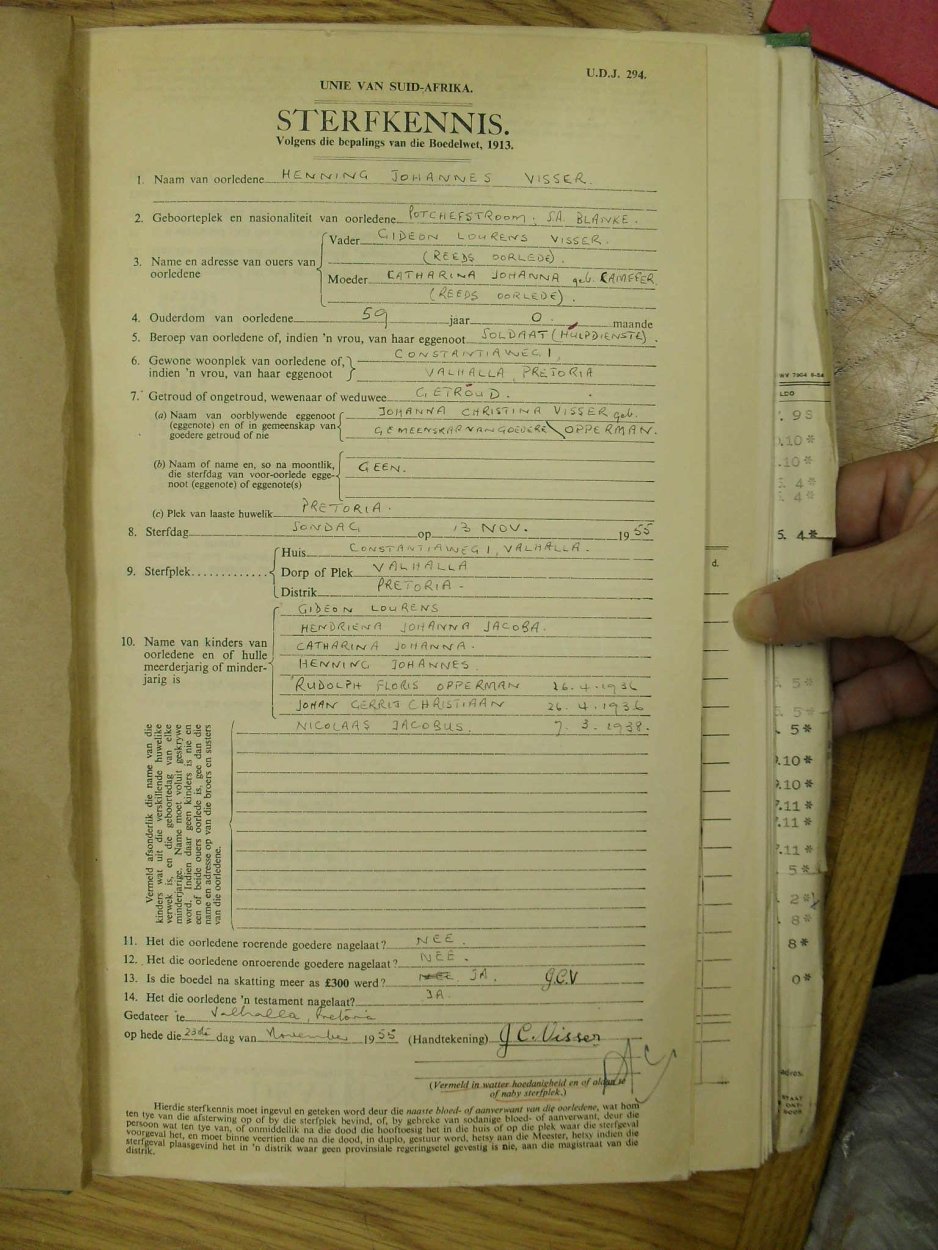 U.D.J. 294.
UNIE VAN SUID-AFRIKA.
STERFKENNIS.
Volgens die bepalings van die Boedelwet, 1913.
1. Naam van oorledene HENNING JOHANNES VISSER.
2. Geboorteplek en nasionaliteit van oorledene POTCHEFSTROOM. SA. BLANKE.
3. Name en adresse van ouers van oorledene
Vader GIDEON LOURENS VISSER.
(REEDS OORLEDE).
Moeder CATHARINA JOHANNA geb. CAMEFFER.
(REEDS OORLEDE).
4. Ouderdom van oorledene 59 jaar 0 maande
5. Beroep van oorledene of, indien 'n vrou, van haar eggenoot SOLDAAT (HULPDIENSTE).
6. Gewone woonplek van oorledene of, indien 'n vrou, van haar eggenoot
CONSTANTIAWEG 1,
VALHALLA, PRETORIA
7. Getroud of ongetroud, wewenaar of weduwee GETROUD.
(a) Naam van oorblywende eggenoot (eggenote) en of in gemeenskap van goedere getroud of nie
JOHANNA CHRISTINA VISSER geb.
GEMEENSKAP VAN GOEDERE OPPERMAN.
(b) Naam of name en, so na moontlik, die sterfdag van voor-oorlede eggenoot (eggenote) of eggenote(s)
GEEN.
(c) Plek van laaste huwelik PRETORIA.
8. Sterfdag SONDAG op 13 NOV. 1955
9. Sterfplek
Huis CONSTANTIAWEG 1, VALHALLA.
Dorp of Plek VALHALLA
Distrik PRETORIA.
10. Name van kinders van oorledene en of hulle meerderjarig of minderjarig is
GIDEON LOURENS
HENDRIENA JOHANNA JACOBA.
CATHARINA JOHANNA.
HENNING JOHANNES.
RUDOLPH FLORIS OPPERMAN 26.4.1936
JOHAN GERRIT CHRISTIAAN 26.4.1936
NICOLAAS JACOBUS. 7.3.1938.
Vermeld afsonderlik die name van die
kinders wat uit die verskillende huwelike
verwek is, en die geboortedag van elke
minderjarige. Name moet voluit geskrywe
word. Indien daar geen kinders is nie en
een of beide ouers oorlede is, gee dan die
name en adresse op van die broers en susters
van die oorledene.
11. Het die oorledene roerende goedere nagelaat? NEE.
12. Het die oorledene onroerende goedere nagelaat? NEE.
13. Is die boedel na skatting meer as £300 werd? NEE JA. JCV
14. Het die oorledene 'n testament nagelaat? JA.
Gedateer te Valhalla, Pretoria
op hede die 23ste dag van November 1955 (Handtekening) J C. Visser
(Vermeld in watter hoedanigheid en of aldaar te of naby sterfplek.)
Hierdie sterfkennis moet ingevul en geteken word deur die naaste bloed- of aanverwant van die oorledene, wat hom
ten tye van die afsterwing op of by die sterfplek bevind, of, by gebreke van sodanige bloed- of aanverwant, deur die
persoon wat ten tye van, of onmiddellik na die dood die hooftoesig het in die huis of op die plek waar die sterfgeval
voorgeval het, en moet binne veertien dae na die dood, in duplo, gestuur word, hetsy aan die Meester, hetsy indien die
sterfgeval plaasgevind het in 'n distrik waar geen provinsiale regeringsetel gevestig is nie, aan die magistraat van die
distrik.